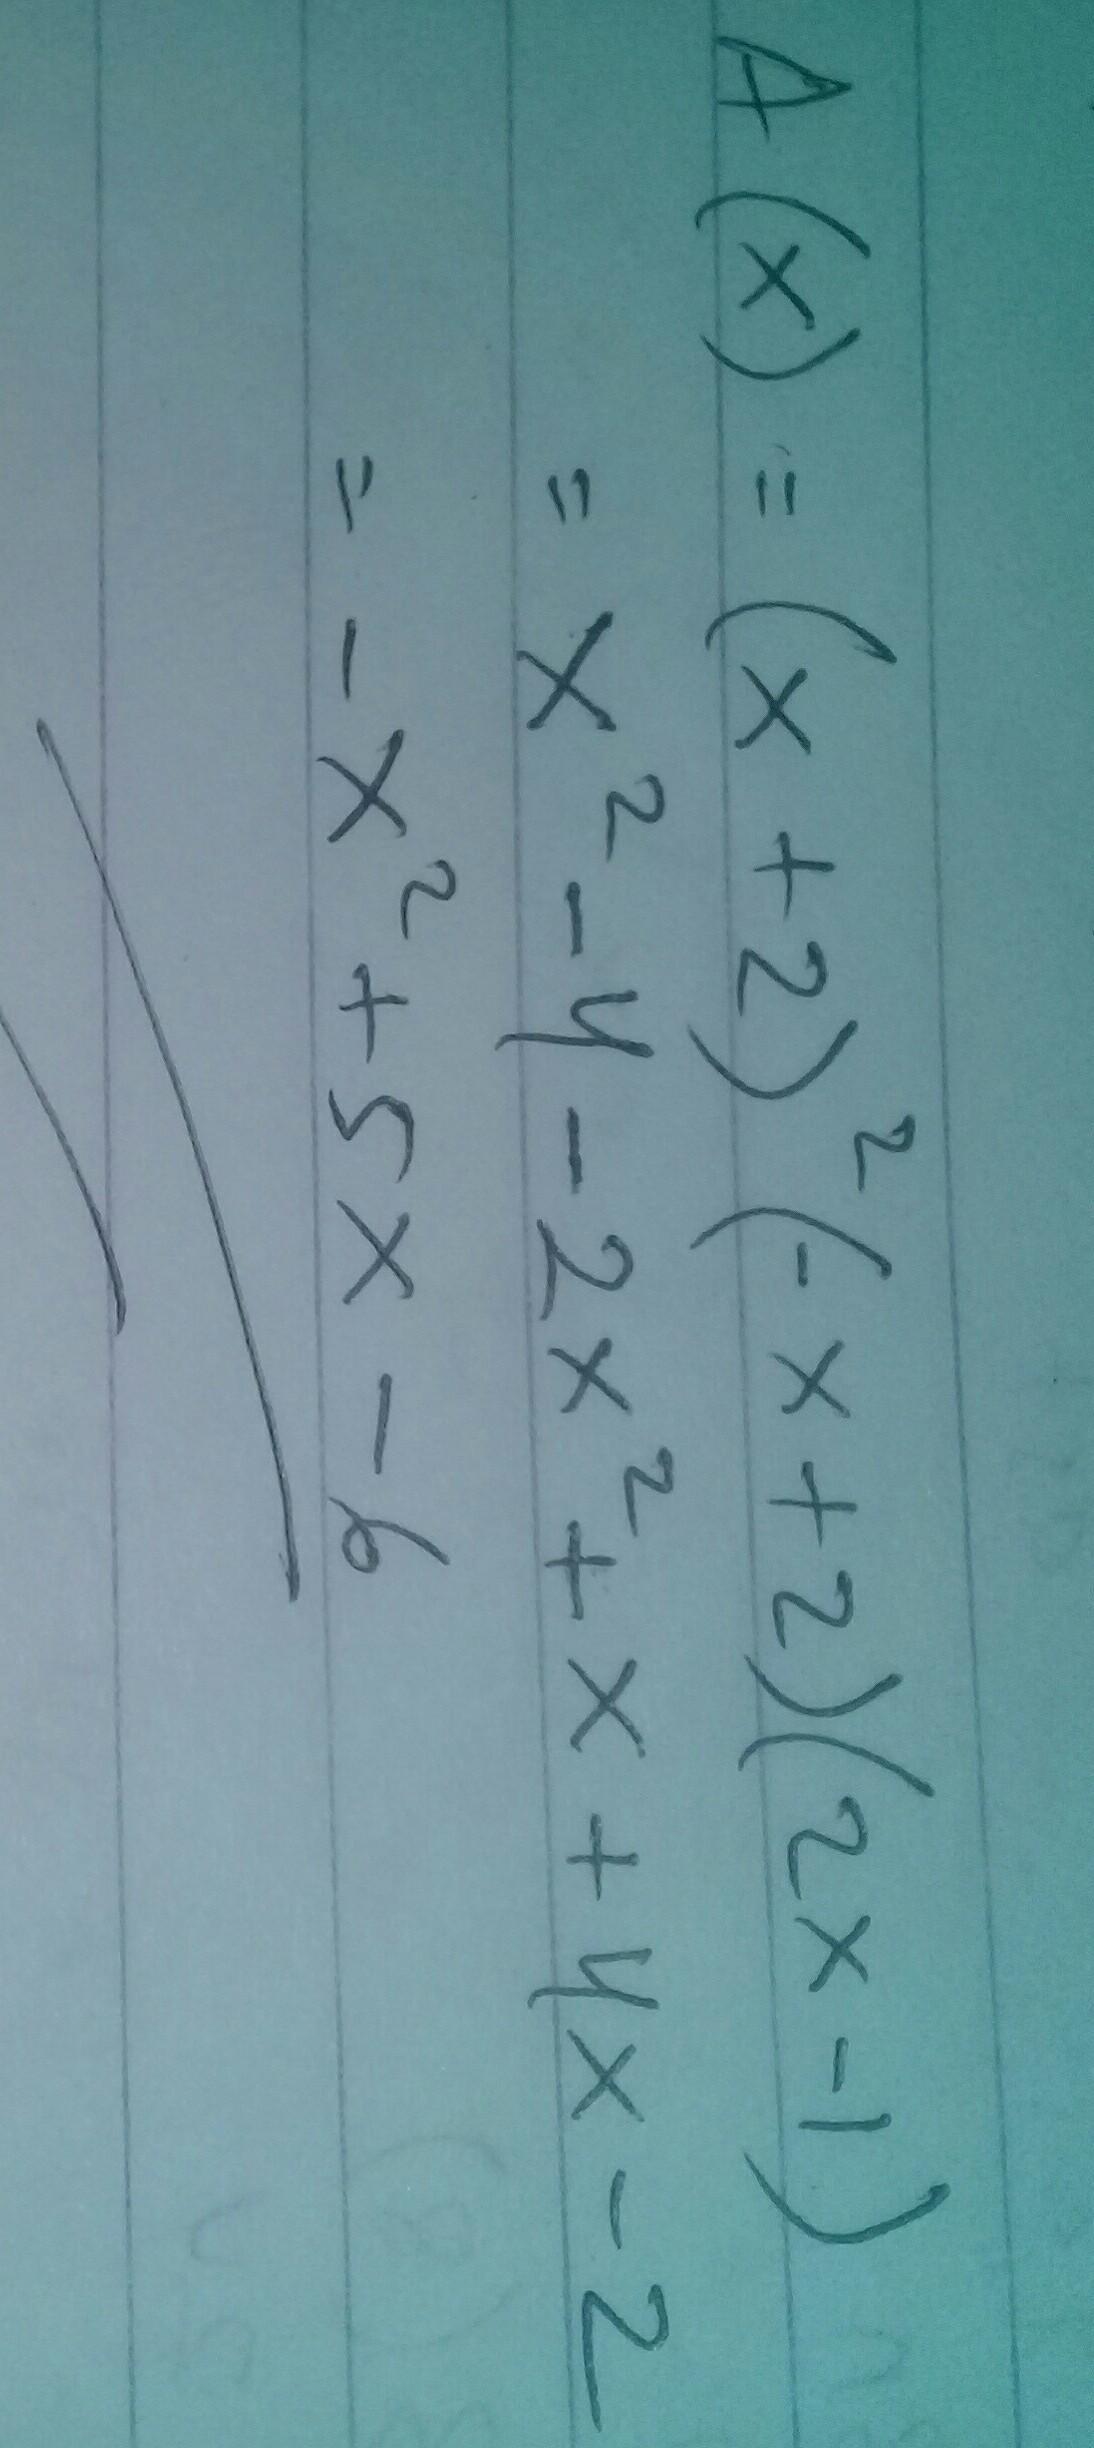 A(x) = (x+2)²(-x+2)(2x-1)
= x²-4-2x²+x+4x-2
= -x²+5x-6